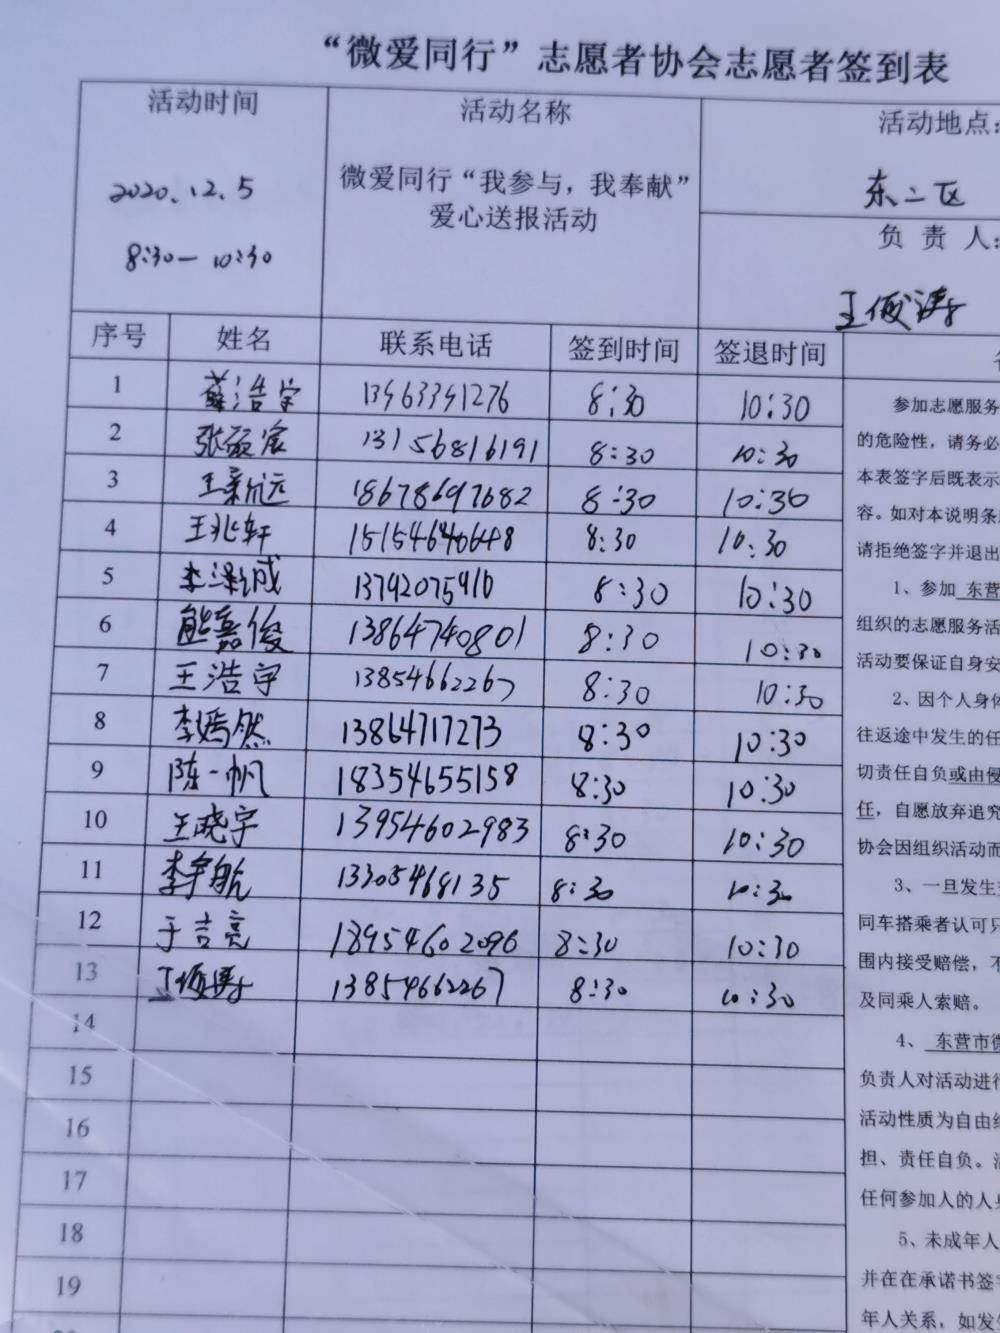 “微爱同行”志愿者协会志愿者签到表
活动时间
2020.12.5
8:30— 10:30
活动名称
微爱同行“我参与，我奉献”
爱心送报活动
活动地点：
东二区
负 责 人：
王俊涛
序号 姓名 联系电话 签到时间 签退时间
1 薛浩宇 13963391276 8:30 10:30
2 13156816191 8:30 10:30
3 王新远 18678697682 8:30 10:30
4 王兆轩 15154640648 8:30 10:30
5 13792075910 8:30 10:30
6 熊嘉俊 13864740801 8:30 10:30
7 王浩宇 13854662267 8:30 10:30
8 李嫣然 13864717273 8:30 10:30
9 陈一帆 18354655158 8:30 10:30
10 王晓宇 13954602983 8:30 10:30
11 李宇航 13305468135 8:30 10:30
12 于吉亮 18954602096 8:30 10:30
13 王俊涛 13854662267 8:30 10:30
14
15
16
17
18
19
参加志愿服务
的危险性，请务必
本表签字后既表示
容。如对本说明条
请拒绝签字并退出
1、参加 东营
组织的志愿服务活
活动要保证自身安
2、因个人身体
往返途中发生的任
切责任自负或由侵
任，自愿放弃追究
协会因组织活动而
3、一旦发生
同车搭乘者认可只
围内接受赔偿，不
及同乘人索赔。
4、 东营市微
负责人对活动进行
活动性质为自由组
担、责任自负。活
任何参加人的人身
5、未成年人
并在在承诺书签字
年人关系，如发生